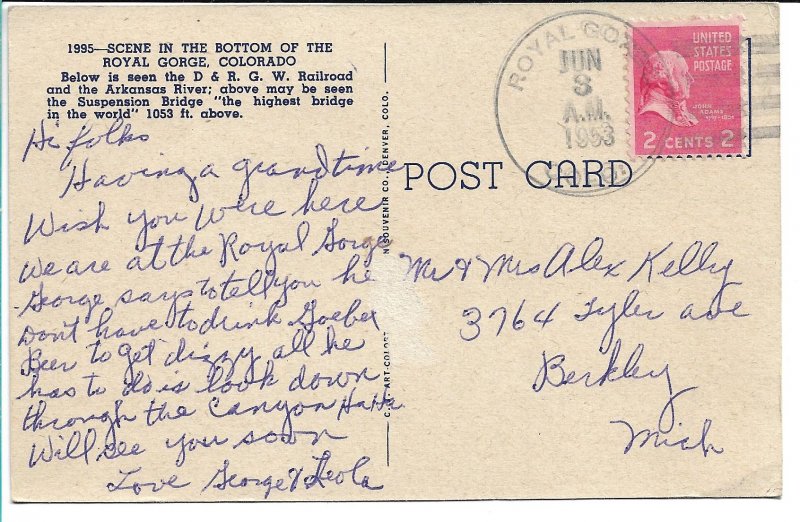 1995—SCENE IN THE BOTTOM OF THE
ROYAL GORGE, COLORADO
Below is seen the D & R. G. W. Railroad
and the Arkansas River; above may be seen
the Suspension Bridge "the highest bridge
in the world" 1053 ft. above.
Hi folks
Having a grand time
Wish you were here
We are at the Royal Gorge
George says to tell you he
Don't have to drink Goebel
Beer to get dizzy all he
has to do is look down
through the Canyon Ha Ha
Will see you soon
Love George & Leola
SOUVENIR CO., DENVER, COLO.
ART-COLOR
POST CARD
ROYAL GORGE
JUN
8
A.M.
1953
UNITED
STATES
POSTAGE
JOHN
ADAMS
2 CENTS 2
Mr & Mrs Alex Kelly
3764 Tyler ave
Berkley
Mich